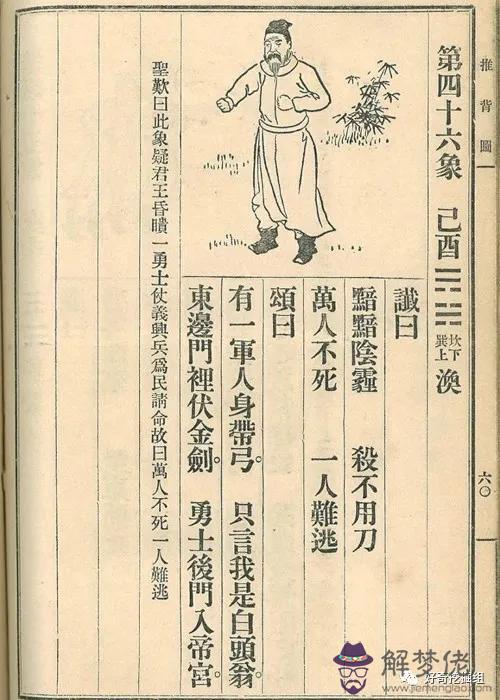 推背圖
六〇
第四十六象 己酉 坎下巽上 渙
讖曰
黯黯陰霾 殺不用刀
萬人不死 一人難逃
頌曰
有一軍人身帶弓。只言我是白頭翁。
東邊門裡伏金劍。勇士後門入帝宮。
聖歎曰此象疑君王昏瞶一勇士仗義興兵爲民請命故曰萬人不死一人難逃
解梦佬
好奇挖掘组